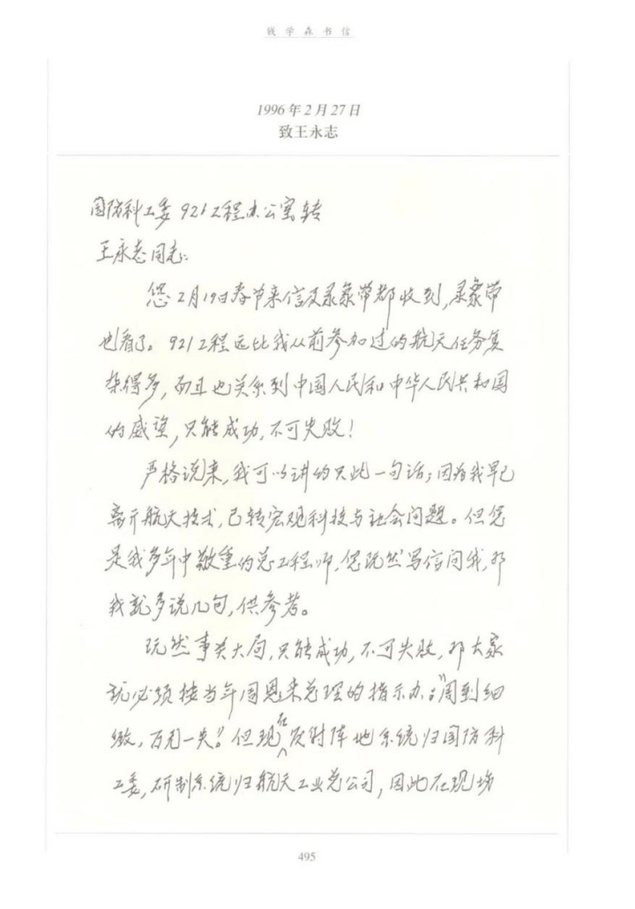 钱学森书信
1996年2月27日
致王永志
国防科工委921工程办公室转
王永志同志：
您2月19日春节来信及录象带都收到，录象带
也看了。921工程远比我从前参加过的航天任务复
杂得多，而且也关系到中国人民和中华人民共和国
的威望，只能成功，不可失败！
严格说来，我可以讲的只此一句话；因为我早已
离开航天技术，已转宏观科技与社会问题。但您
是我多年中敬重的总工程师，您既然写信问我，那
我就多说几句，供参考。
既然事关大局，只能成功，不可失败，那大家
就必须按当年周恩来总理的指示办：“周到细
致，万无一失”。但现在发射阵地系统归国防科
工委，研制系统归航天工业总公司，因此在现场
495